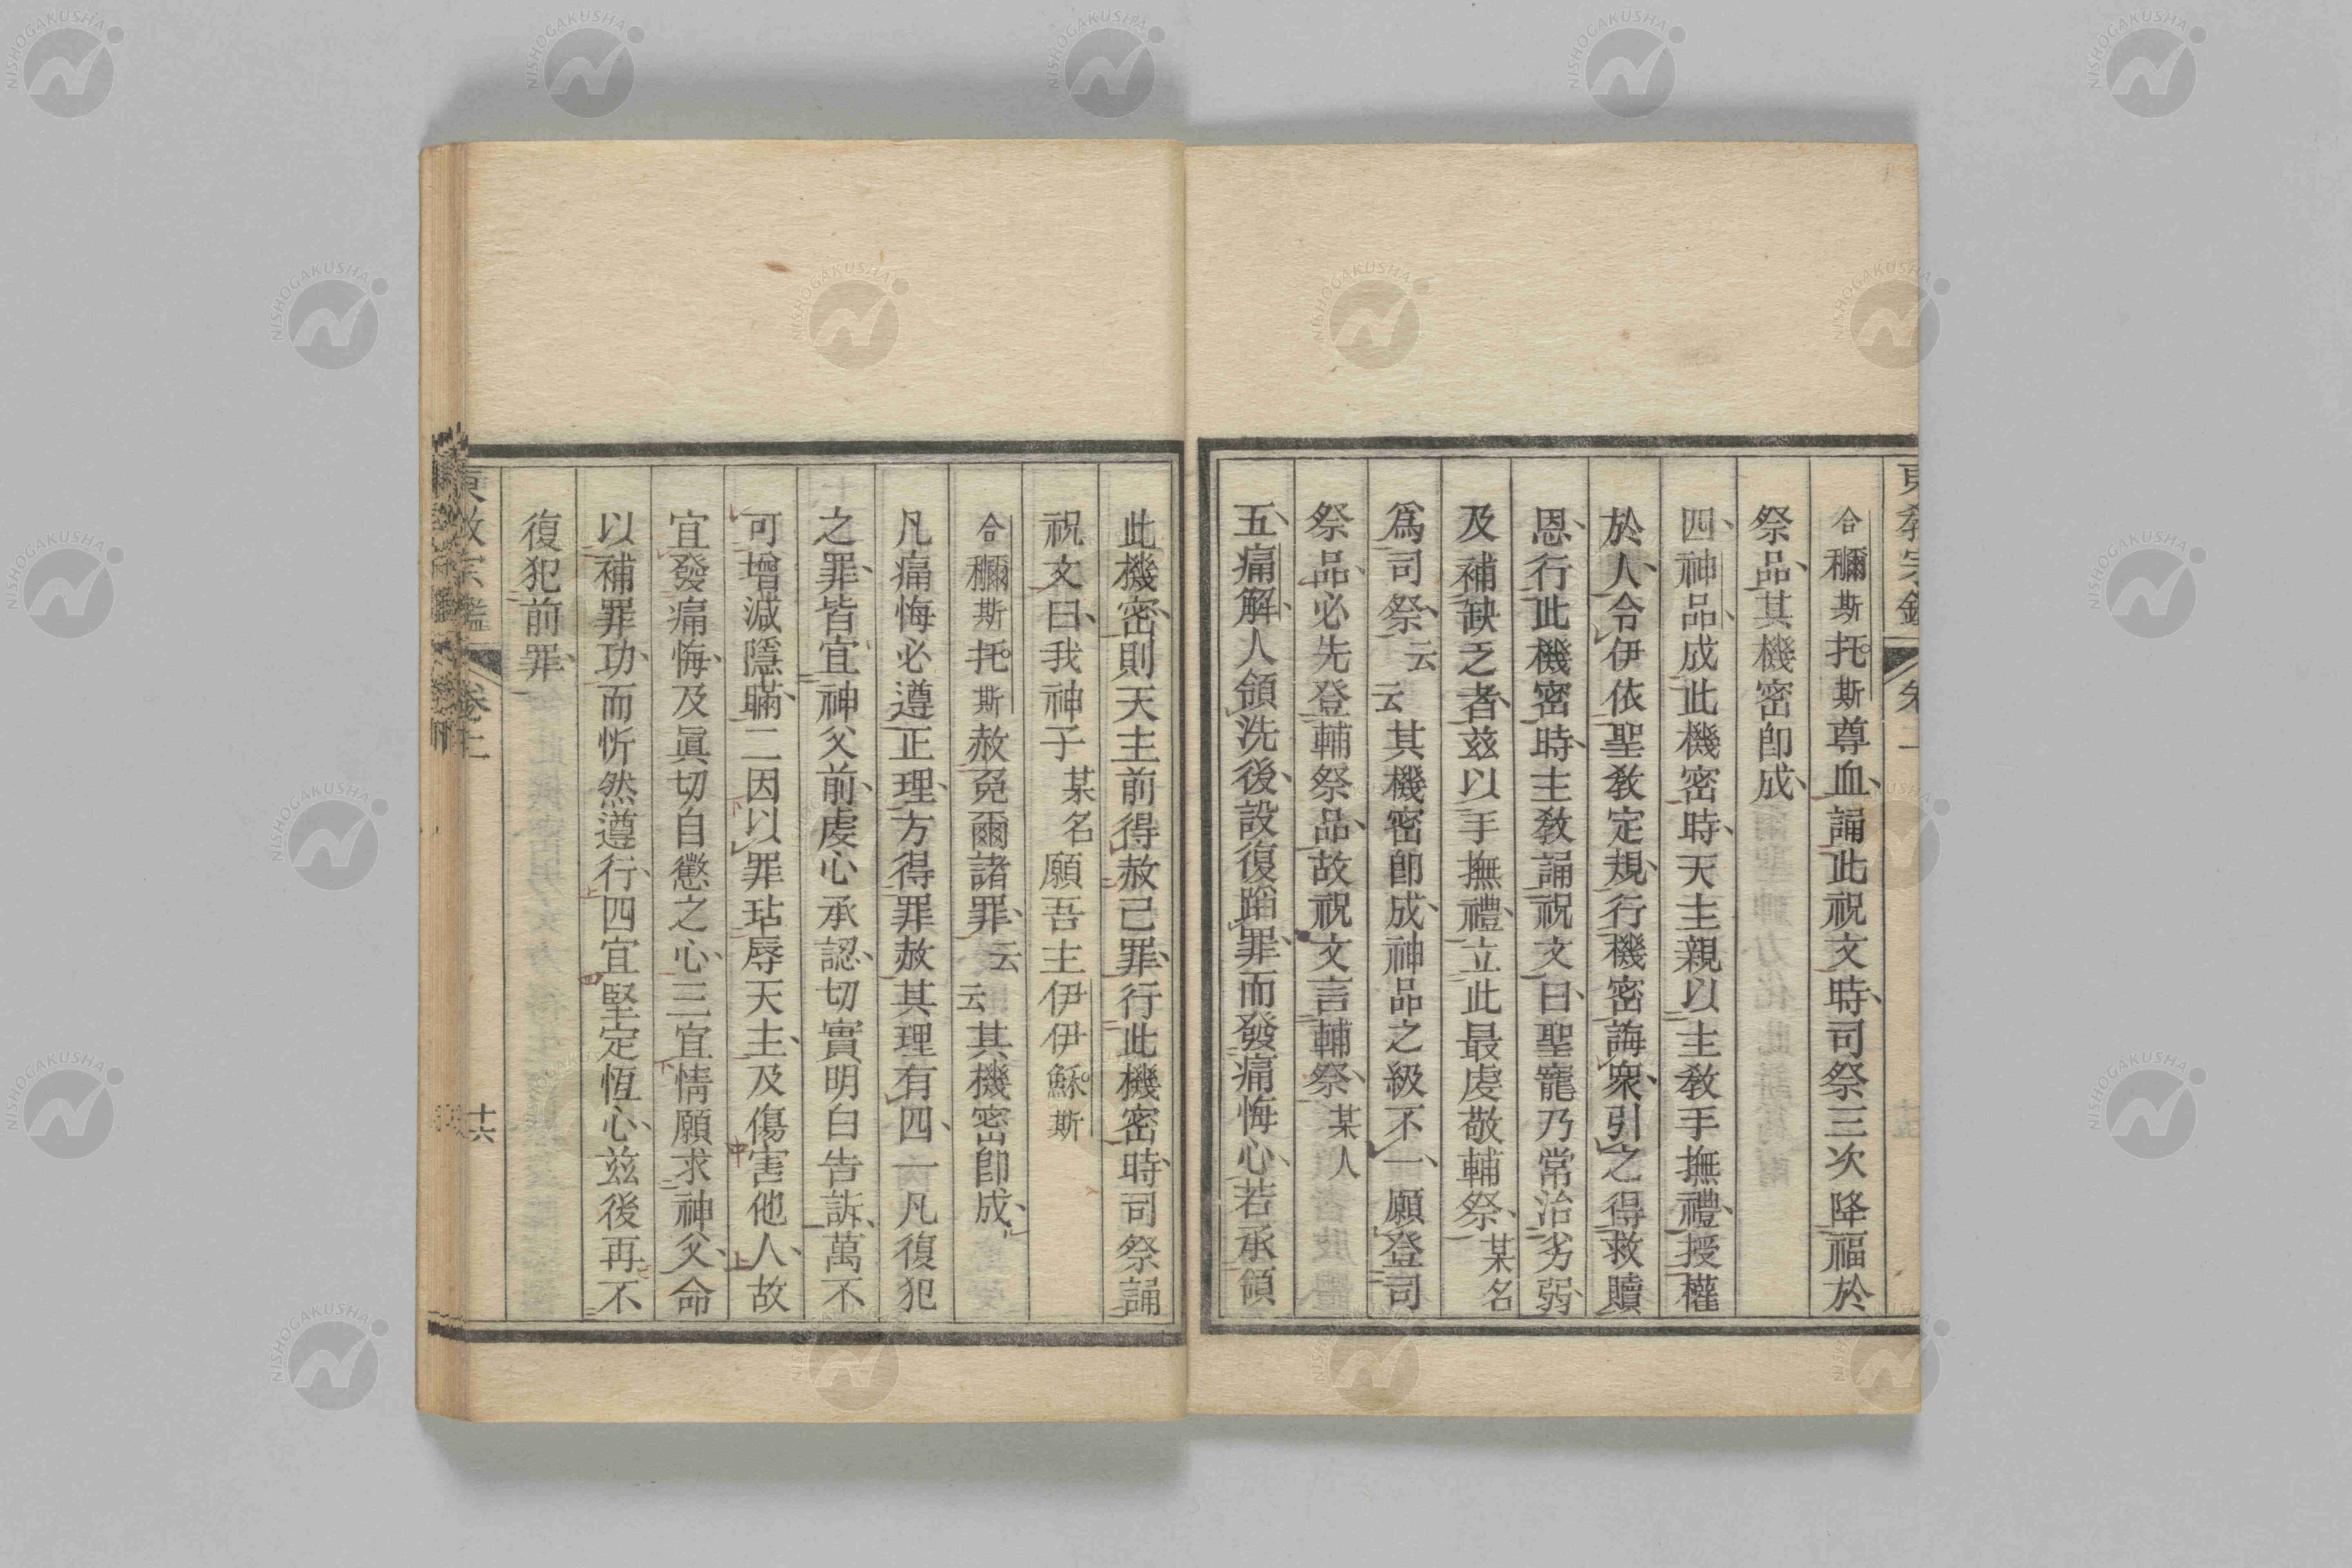 東敎宗鑑 卷二
合穪斯托斯尊血誦此祝文時司祭三次降福於
祭品其機密卽成
四神品成此機密時天主親以主敎手撫禮授權
於人令伊依聖敎定規行機密誨衆引之得救贖
恩行此機密時主敎誦祝文曰聖寵乃常治劣弱
及補缺乏者茲以手撫禮立此最虔敬輔祭某名
爲司祭云云其機密卽成神品之級不一願登司
祭品必先登輔祭品故祝文言輔祭某人
五痛解人領洗後設復蹈罪而發痛悔心若承領
此機密則天主前得赦己罪行此機密時司祭誦
祝文曰我神子某名願吾主伊伊穌斯
合穪斯托斯赦免爾諸罪云云其機密卽成
凡痛悔必遵正理方得罪赦其理有四一凡復犯
之罪皆宜神父前虔心承認切實明白告訴萬不
可增減隱瞞二因以罪玷辱天主及傷害他人故
宜發痛悔及眞切自懲之心三宜情願求神父命
以補罪功而忻然遵行四宜堅定恆心茲後再不
復犯前罪
東敎宗鑑 卷二 十六
NISHOGAKUSHA